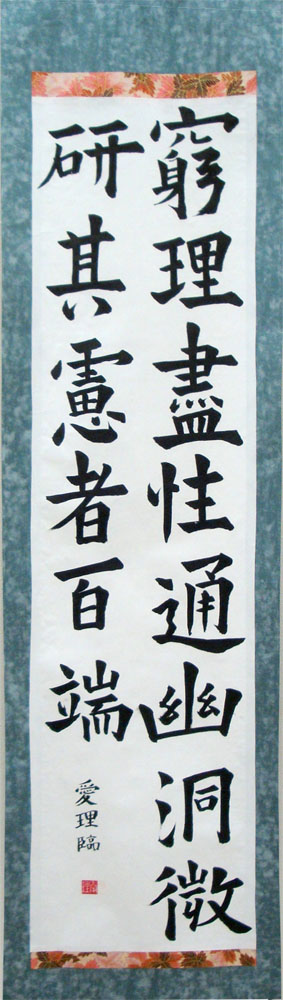 窮理盡性通幽洞微
研其慮者百端
愛理臨